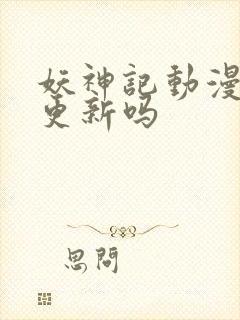 妖神記動漫
更新吗
思問